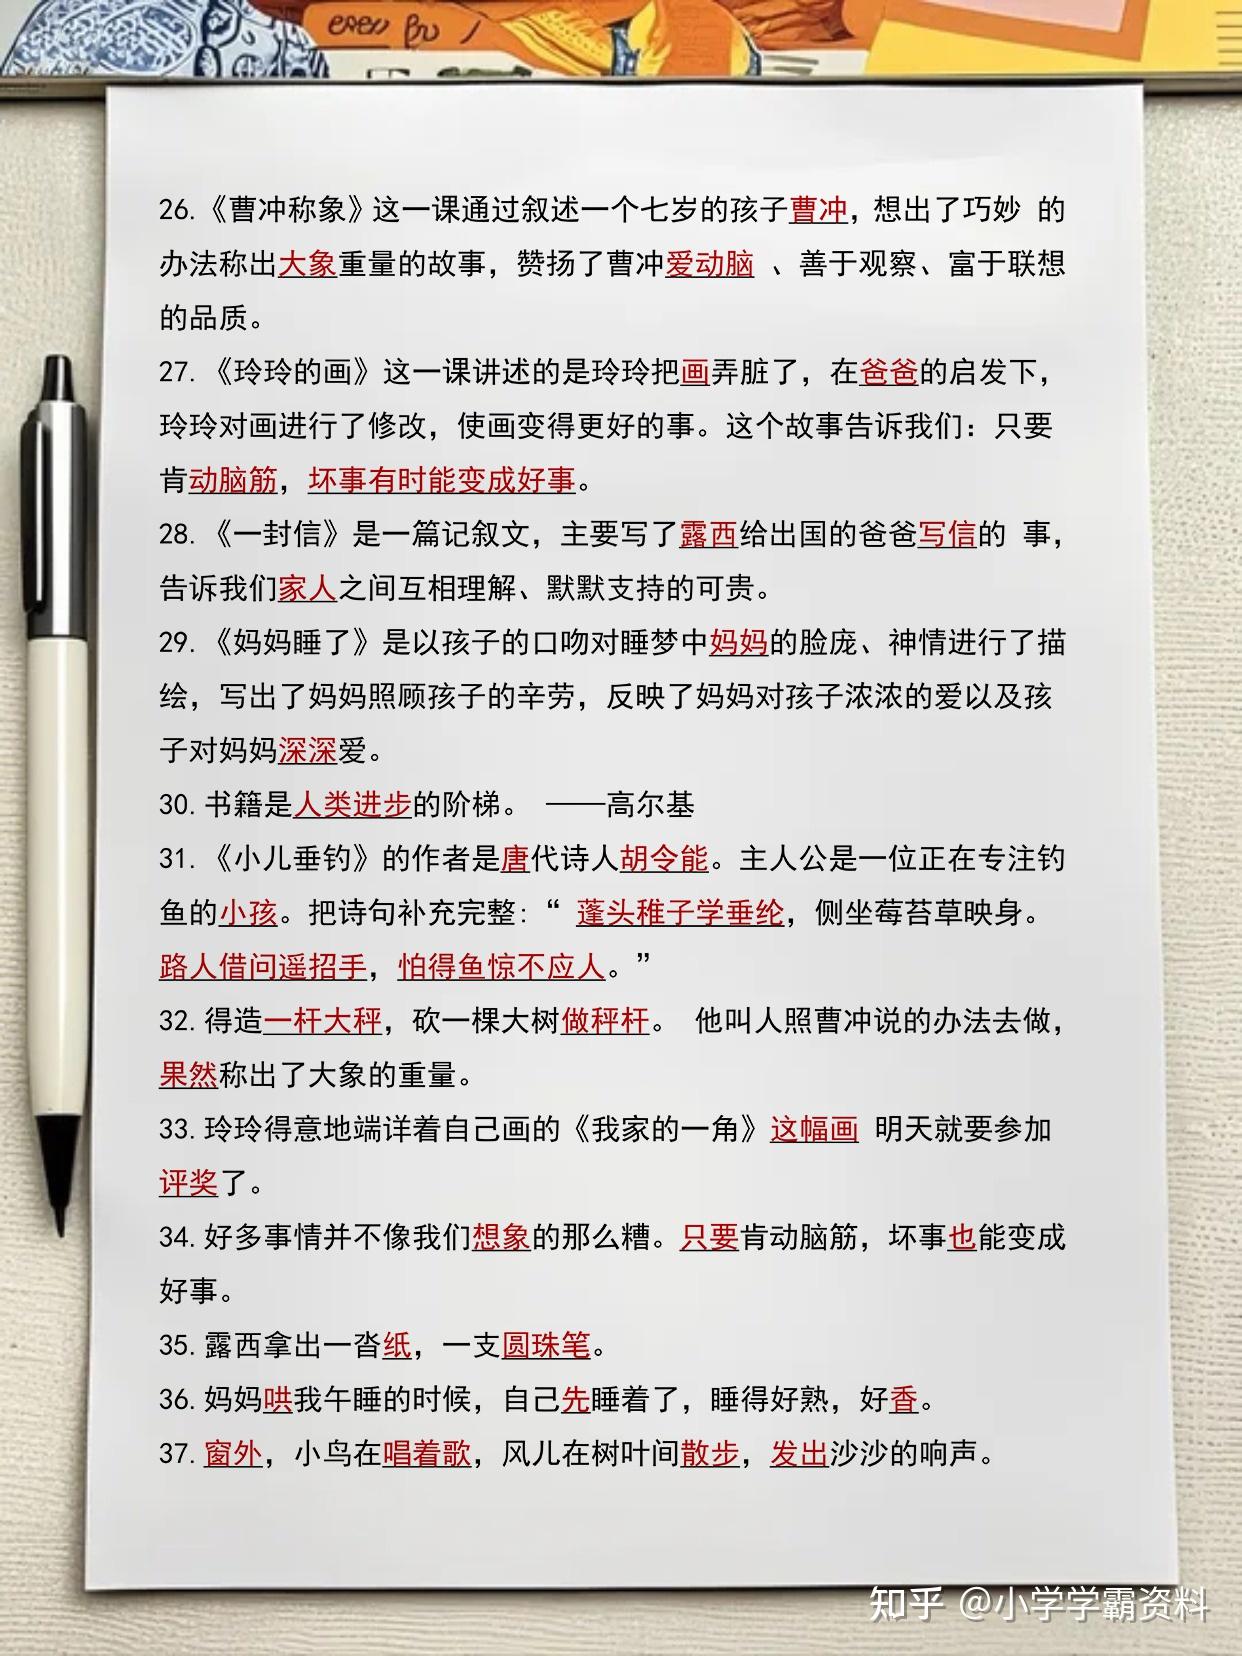 26.《曹冲称象》这一课通过叙述一个七岁的孩子曹冲，想出了巧妙 的
办法称出大象重量的故事，赞扬了曹冲爱动脑 、善于观察、富于联想
的品质。
27.《玲玲的画》这一课讲述的是玲玲把画弄脏了，在爸爸的启发下，
玲玲对画进行了修改，使画变得更好的事。这个故事告诉我们：只要
肯动脑筋，坏事有时能变成好事。
28.《一封信》是一篇记叙文，主要写了露西给出国的爸爸写信的 事，
告诉我们家人之间互相理解、默默支持的可贵。
29.《妈妈睡了》是以孩子的口吻对睡梦中妈妈的脸庞、神情进行了描
绘，写出了妈妈照顾孩子的辛劳，反映了妈妈对孩子浓浓的爱以及孩
子对妈妈深深爱。
30.书籍是人类进步的阶梯。 ——高尔基
31.《小儿垂钓》的作者是唐代诗人胡令能。主人公是一位正在专注钓
鱼的小孩。把诗句补充完整：“ 蓬头稚子学垂纶，侧坐莓苔草映身。
路人借问遥招手，怕得鱼惊不应人。”
32.得造一杆大秤，砍一棵大树做秤杆。 他叫人照曹冲说的办法去做，
果然称出了大象的重量。
33.玲玲得意地端详着自己画的《我家的一角》这幅画 明天就要参加
评奖了。
34.好多事情并不像我们想象的那么糟。只要肯动脑筋，坏事也能变成
好事。
35.露西拿出一沓纸，一支圆珠笔。
36.妈妈哄我午睡的时候，自己先睡着了，睡得好熟，好香。
37.窗外，小鸟在唱着歌，风儿在树叶间散步，发出沙沙的响声。
知乎 @小学学霸资料